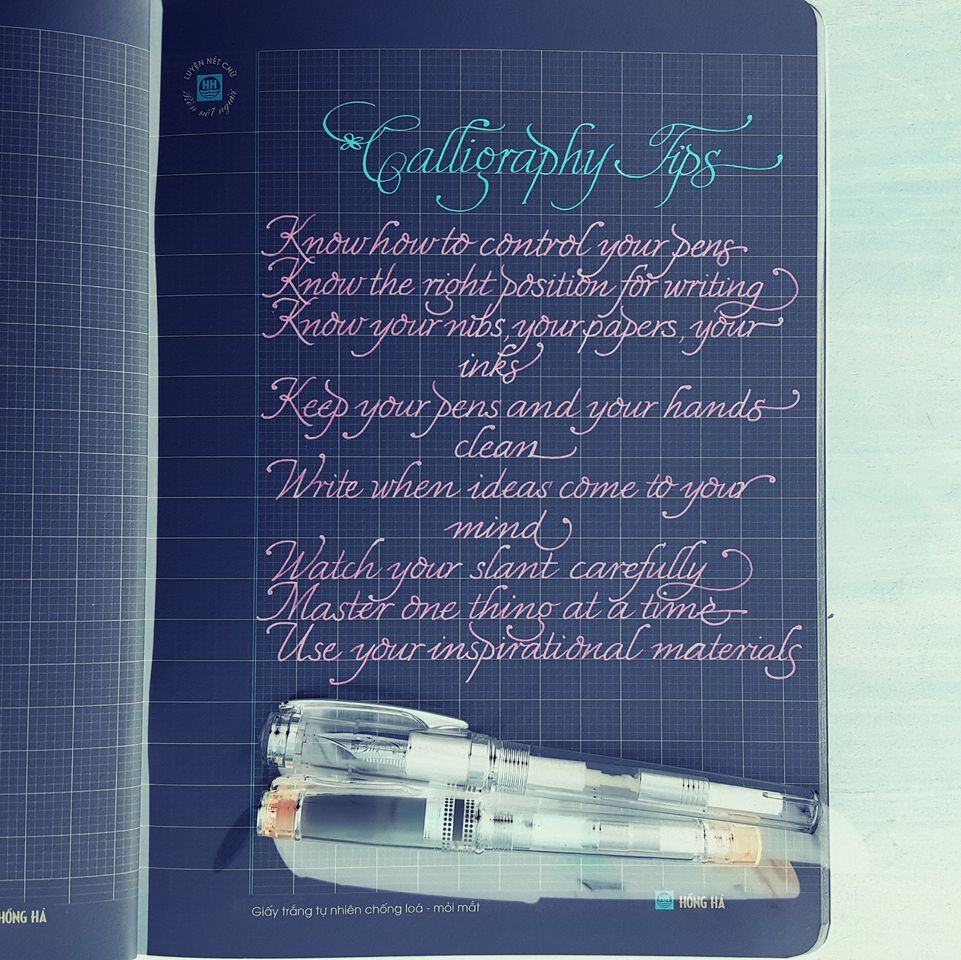 LUYỆN NÉT CHỮ
HH
Rèn nết người
Calligraphy Tips
Know how to control your pens
Know the right position for writing
Know your nibs, your papers, your
inks
Keep your pens and your hands
clean
Write when ideas come to your
mind
Watch your slant carefully
Master one thing at a time
Use your inspirational materials
HỒNG HÀ
Giấy trắng tự nhiên chống loá - mỏi mắt
HH HỒNG HÀ